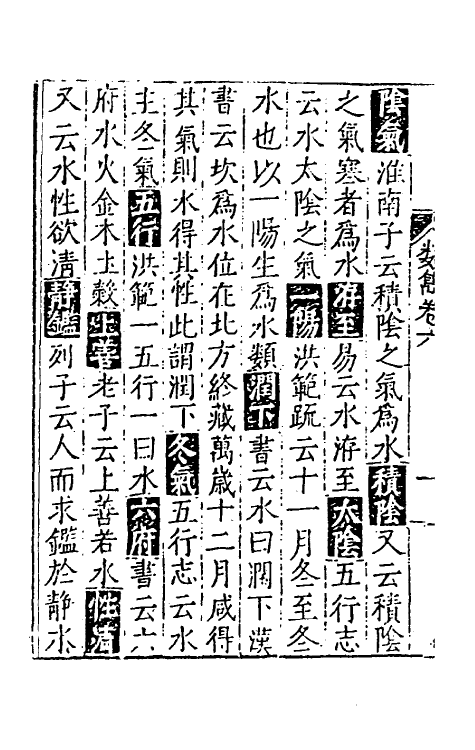 陰氣淮南子云積陰之氣爲水積陰又云積陰
之氣寒者爲水洊至易云水洊至太陰五行志
云水太陰之氣一陽洪範疏云十一月冬至冬
水也以一陽生爲水類潤下書云水曰潤下漢
書云坎爲水位在北方終藏萬歲十二月咸得
其氣則水得其性此謂潤下冬氣五行志云水
主冬氣五行洪範一五行一曰水六府書云六
府水火金木土穀上善老子云上善若水性清
又云水性欲清靜鑑列子云人而求鑑於靜水
卷六
一